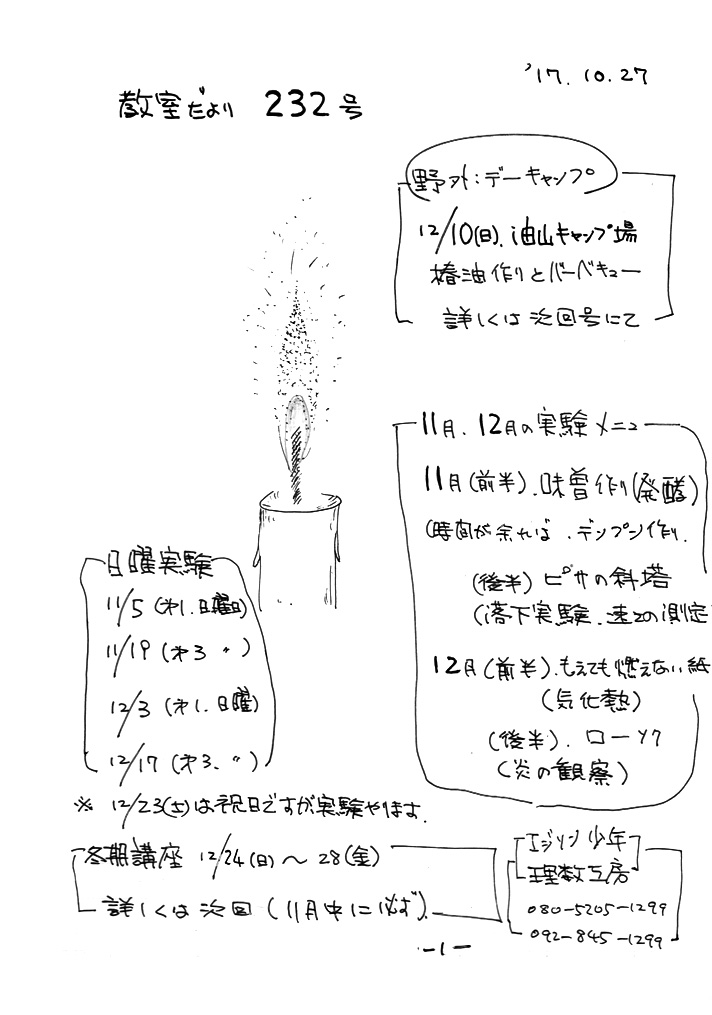 '17.10.27
教室だより 232号
野外:デーキャンプ
12/10(日)、油山キャンプ場
椿油作りとバーベキュー
詳しくは次回号にて
11月、12月の実験メニュー
11月(前半)、味噌作り(発酵)
(時間が余れば、デンプン作り、
(後半)ピサの斜塔
(落下実験、速さの測定
12月(前半)、もえても燃えない紙
(気化熱)
(後半)、ローソク
(炎の観察)
日曜実験
11/5(オ1.日曜日)
11/19(オ3 〃)
12/3(オ1.日曜)
12/17(オ3、〃)
※ 12/23(土)は祝日ですが実験やります。
冬期講座 12/24(日)〜28(金)
詳しくは次回(11月中に必ず)
エジソン少年
理数工房
080-5205-1299
092-845-1299
-1-